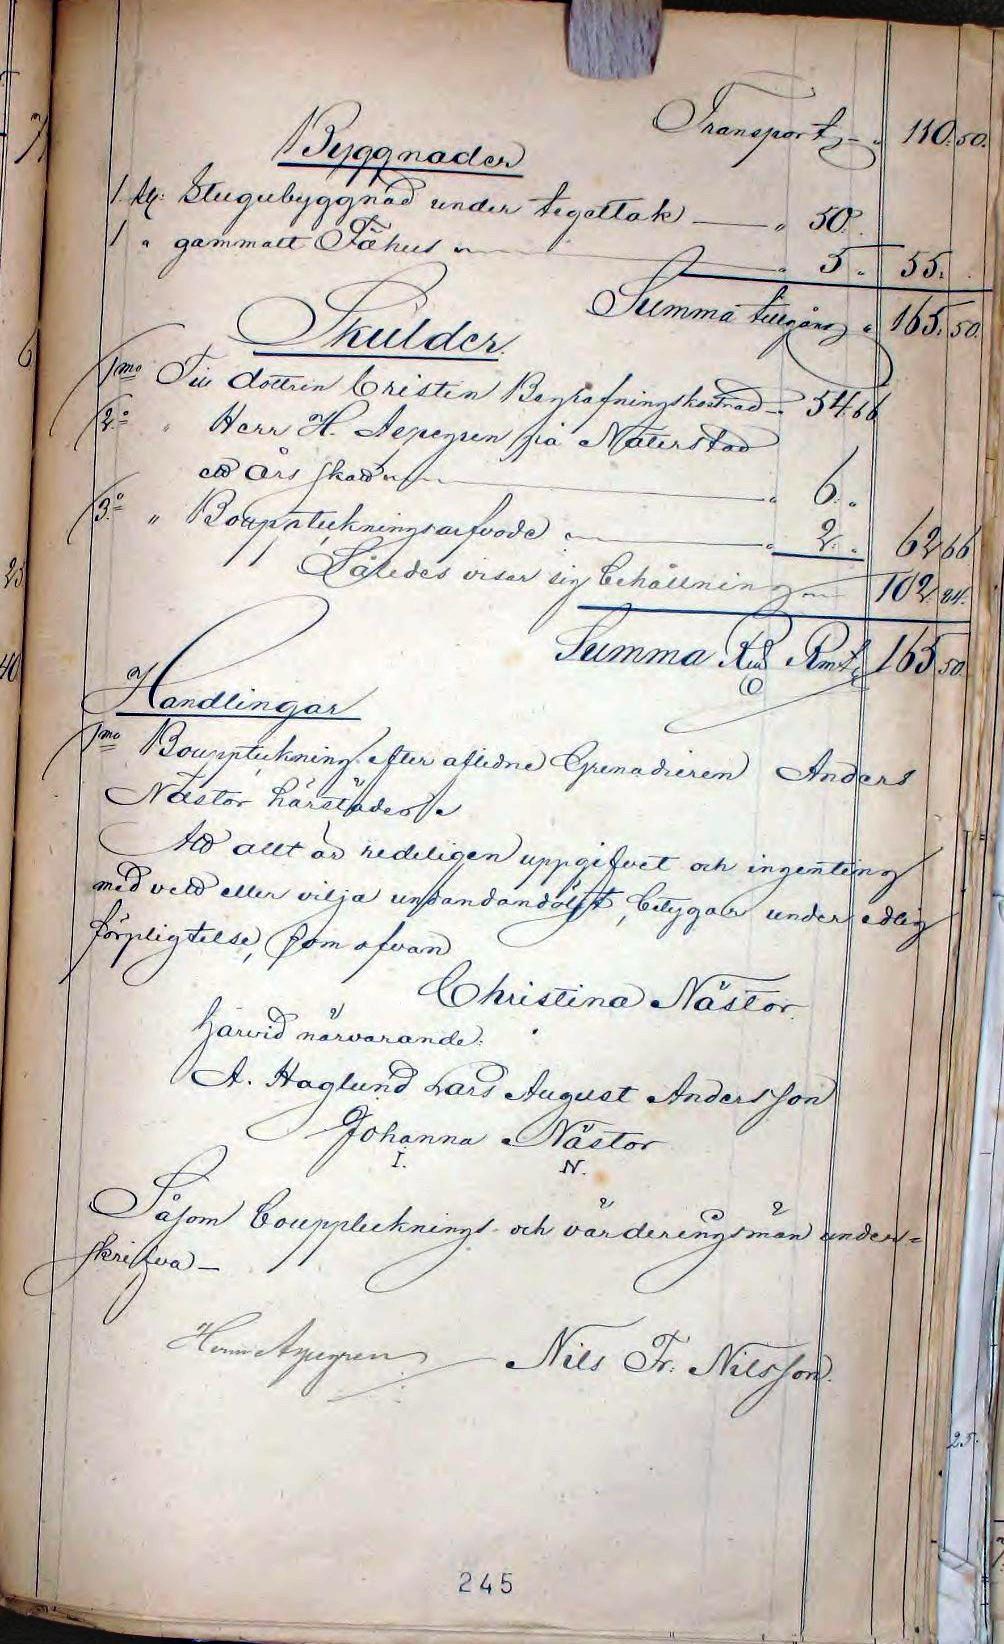 Transport " 110.50.
Byggnader
1. st: Stugubyggnad under tegaltak " 50.
1 " gammalt Fähus " 5 " 55.
Summa tillgång " 165.50.
Skulder.
1mo Till dottren Cristin Begrafningskostnad " 54.66
2.o " Herr H. Aspegren på Näterstad
ett års skatt " 6. "
3.o " Bouppteckningsarfvode " 2. " 62 66
Således visar sig behållning 102. 84.
Summa Rd Rmt 165 50
Handlingar
1mo Bouppteckning efter aflidne Grenadieren Anders
Nästor härstädes
Att allt är redeligen uppgifvet och ingenting
med vett eller vilja undandöljt, betygar under edlig
förpligtelse, som ofvan
Christina Nästor.
härvid närvarande:
A. Haglund Lars August Andersson
Johanna Nästor
I. N.
Såsom bouppteknings och värderingsmän under=
skrifva
Aspegren Nils Fr. Nilsson.
25.
245